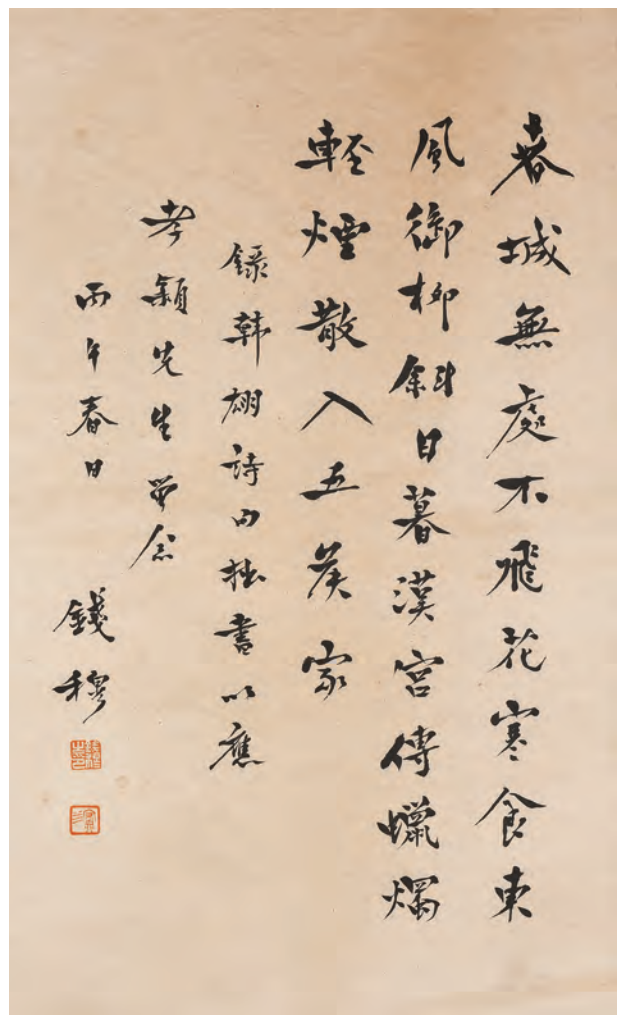 春城無處不飛花寒食東
風御柳斜日暮漢宮傳蠟燭
輕煙散入五侯家
錄韓翃詩句拙書以應
孝穎先生留念
丙午春日
錢穆